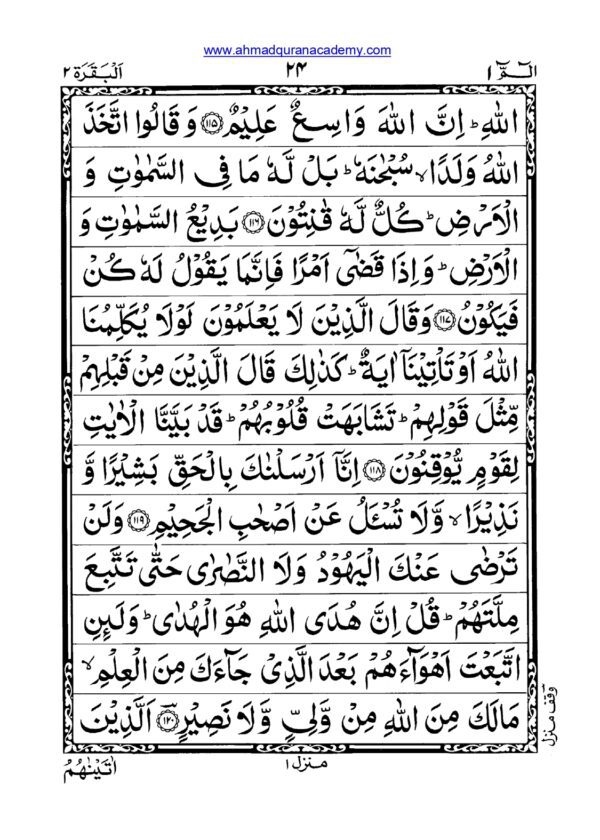 www.ahmadquranacademy.com
الٓمّٓ ١ ٢٤ اَلْبَقَرَة ٢
اللّٰهِ ؕ اِنَّ اللّٰهَ وَاسِعٌ عَلِيْمٌ ﴿۱۱۵﴾ وَ قَالُوا اتَّخَذَ
اللّٰهُ وَلَدًا ۙ سُبْحٰنَهٗ ؕ بَلْ لَّهٗ مَا فِى السَّمٰوٰتِ وَ
الْاَرْضِ ؕ كُلٌّ لَّهٗ قٰنِتُوْنَ ﴿۱۱۶﴾ بَدِيْعُ السَّمٰوٰتِ وَ
الْاَرْضِ ؕ وَ اِذَا قَضٰٓى اَمْرًا فَاِنَّمَا يَقُوْلُ لَهٗ كُنْ
فَيَكُوْنُ ﴿۱۱۷﴾ وَقَالَ الَّذِيْنَ لَا يَعْلَمُوْنَ لَوْلَا يُكَلِّمُنَا
اللّٰهُ اَوْ تَاْتِيْنَاۤ اٰيَةٌ ؕ كَذٰلِكَ قَالَ الَّذِيْنَ مِنْ قَبْلِهِمْ
مِّثْلَ قَوْلِهِمْ ؕ تَشَابَهَتْ قُلُوْبُهُمْ ؕ قَدْ بَيَّنَّا الْاٰيٰتِ
لِقَوْمٍ يُّوْقِنُوْنَ ﴿۱۱۸﴾ اِنَّاۤ اَرْسَلْنٰكَ بِالْحَقِّ بَشِيْرًا وَّ
نَذِيْرًا ۙ وَّلَا تُسْئَلُ عَنْ اَصْحٰبِ الْجَحِيْمِ ﴿۱۱۹﴾ وَلَنْ
تَرْضٰى عَنْكَ الْيَهُوْدُ وَلَا النَّصٰرٰى حَتّٰى تَتَّبِعَ
مِلَّتَهُمْ ؕ قُلْ اِنَّ هُدَى اللّٰهِ هُوَ الْهُدٰى ؕ وَلَئِنِ
اتَّبَعْتَ اَهْوَآءَهُمْ بَعْدَ الَّذِىْ جَآءَكَ مِنَ الْعِلْمِ ۙ
مَا لَكَ مِنَ اللّٰهِ مِنْ وَّلِىٍّ وَّلَا نَصِيْرٍ ﴿۱۲۰﴾ اَلَّذِيْنَ
وقف منزل
منزل ١
اٰتَيْنٰهُمُ